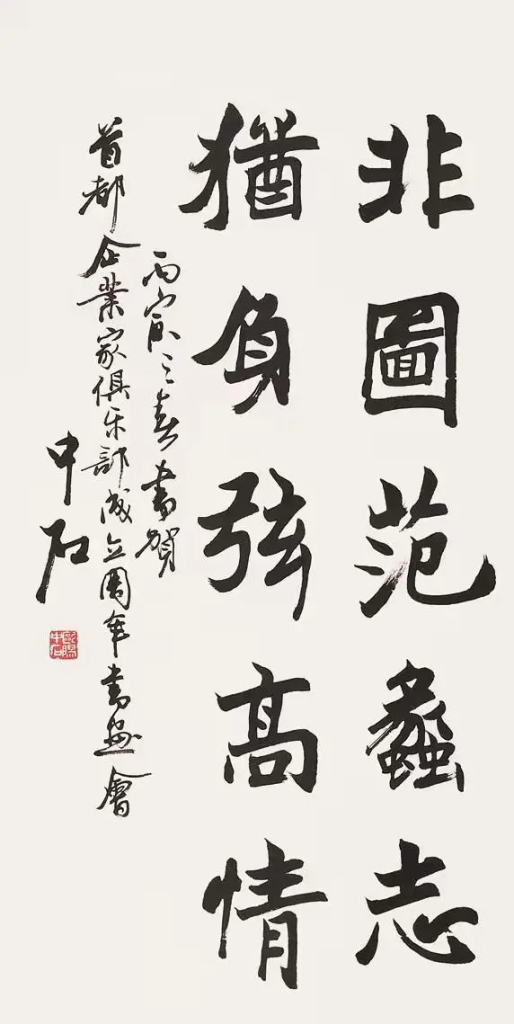 非圖范蠡志
猶負弦高情
丙寅之春書賀
首都企業家俱乐部成立周年書画會
中石
歐陽中石